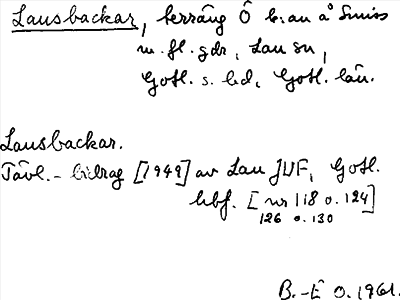 Lausbackar, terräng Ö b. an å Smiss
m. fl. gdr, Lau sn,
Gotl. s. hd, Gotl. län.
Lausbackar.
Tävl.-bidrag [1949] av Lau JUF, Gotl.
hbf. [nr 118 o. 124]
126 o. 130
B.-E O. 1961.